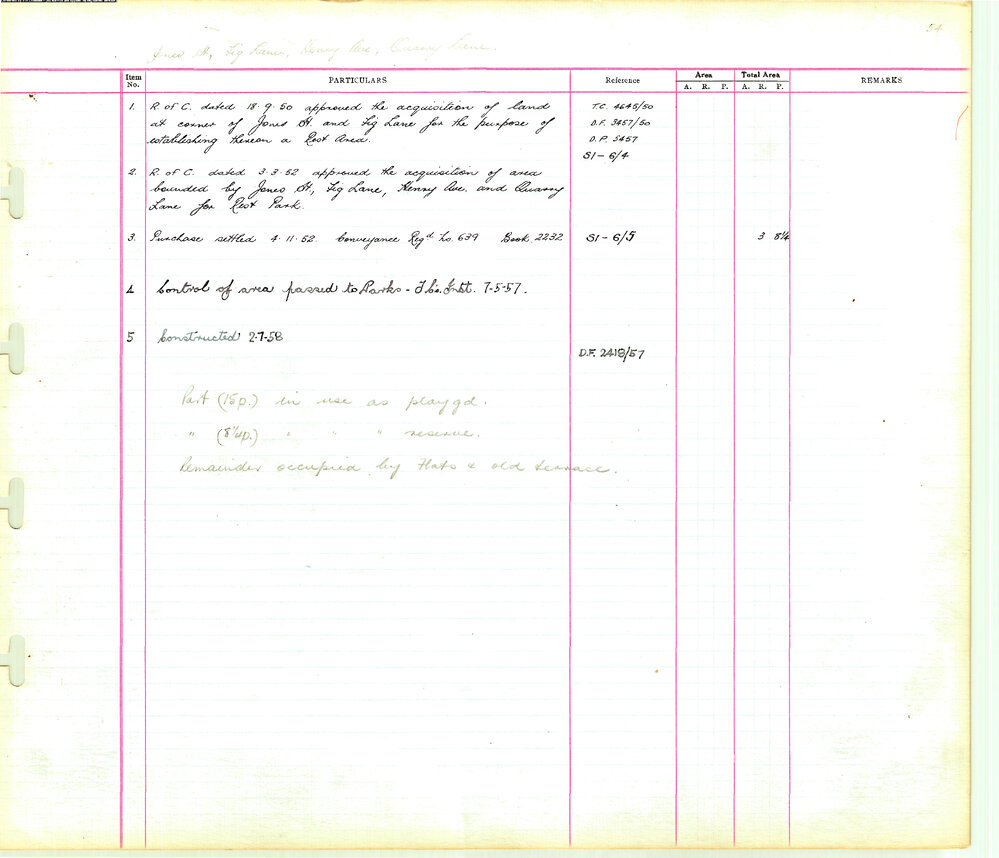 54
Jones St, Fig Lane, Henry Ave, Quarry Lane.
Item No. PARTICULARS Reference Area Total Area REMARKS
A. R. P. A. R. P.
1. R of C. dated 18·9·50 approved the acquisition of land T.C. 4645/50
at corner of Jones St and Fig Lane for the purpose of D.F. 3457/50
establishing thereon a Rest Area. D.P. 5457
S1-6/4
2. R. of C. dated 3·3·52 approved the acquisition of area
bounded by Jones St, Fig Lane, Henry Ave. and Quarry
Lane for Rest Park.
3. Purchase settled 4·11·52. Conveyance Regd No. 639 Book 2232 S1-6/5 3 8¼
4 Control of area passed to Parks - T.C's. Inst. 7-5-57.
5 Constructed 2·7·58
D.F. 2418/57
Part (15p.) in use as playgd.
" (8¼p.) " " " reserve.
Remainder occupied by flats & old terrace.